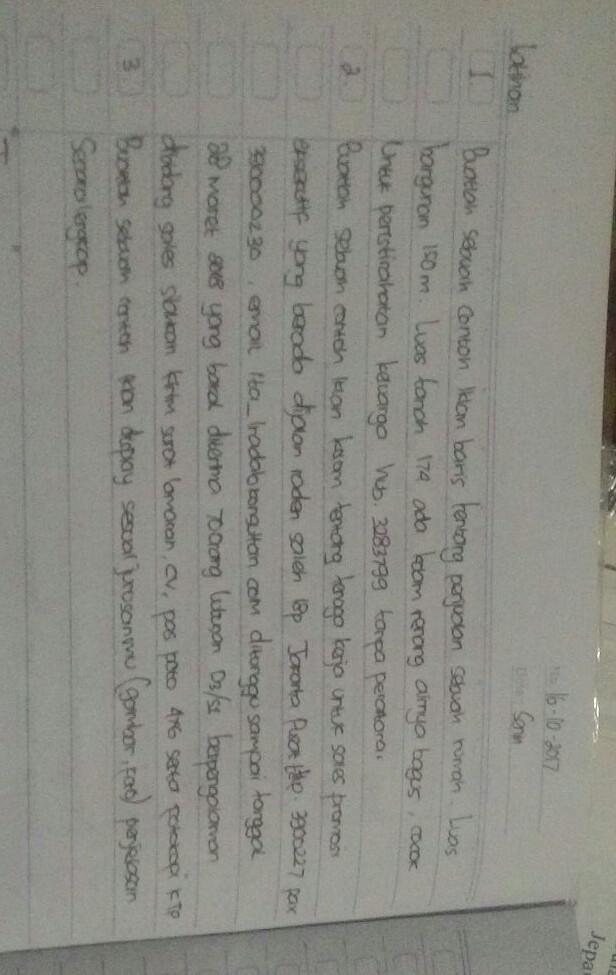 No. 16-10-2017
Date. Senin
Latihan
1. Buatlah sebuah contoh iklan baris tentang penjualan sebuah rumah luas
bangunan 150 m. Luas tanah 174 ada kolam renang airnya bagus, cocok
Untuk peristirahatan keluarga hub. 3283799 tanpa perantara.
2. Buatlah sebuah contoh iklan kolom tentang tenaga kerja untuk sales promosi
eksekutif yang berada dijalan raden saleh Jakarta Pusat telp. 3900227 pax
390000230, email ita_ com ditunggu sampai tanggal
28 maret 2018 yang bakal diterima 70 orang lulusan D3/S1 berpengalaman
dibidang sales silahkan kirim surat lamaran, CV, pas poto 4x6 serta potokopi KTP
3 Buatlah sebuah contoh iklan display sesuai jurusanmu (gambar, Foto) penjelasan
Secara lengkap.
Jepa